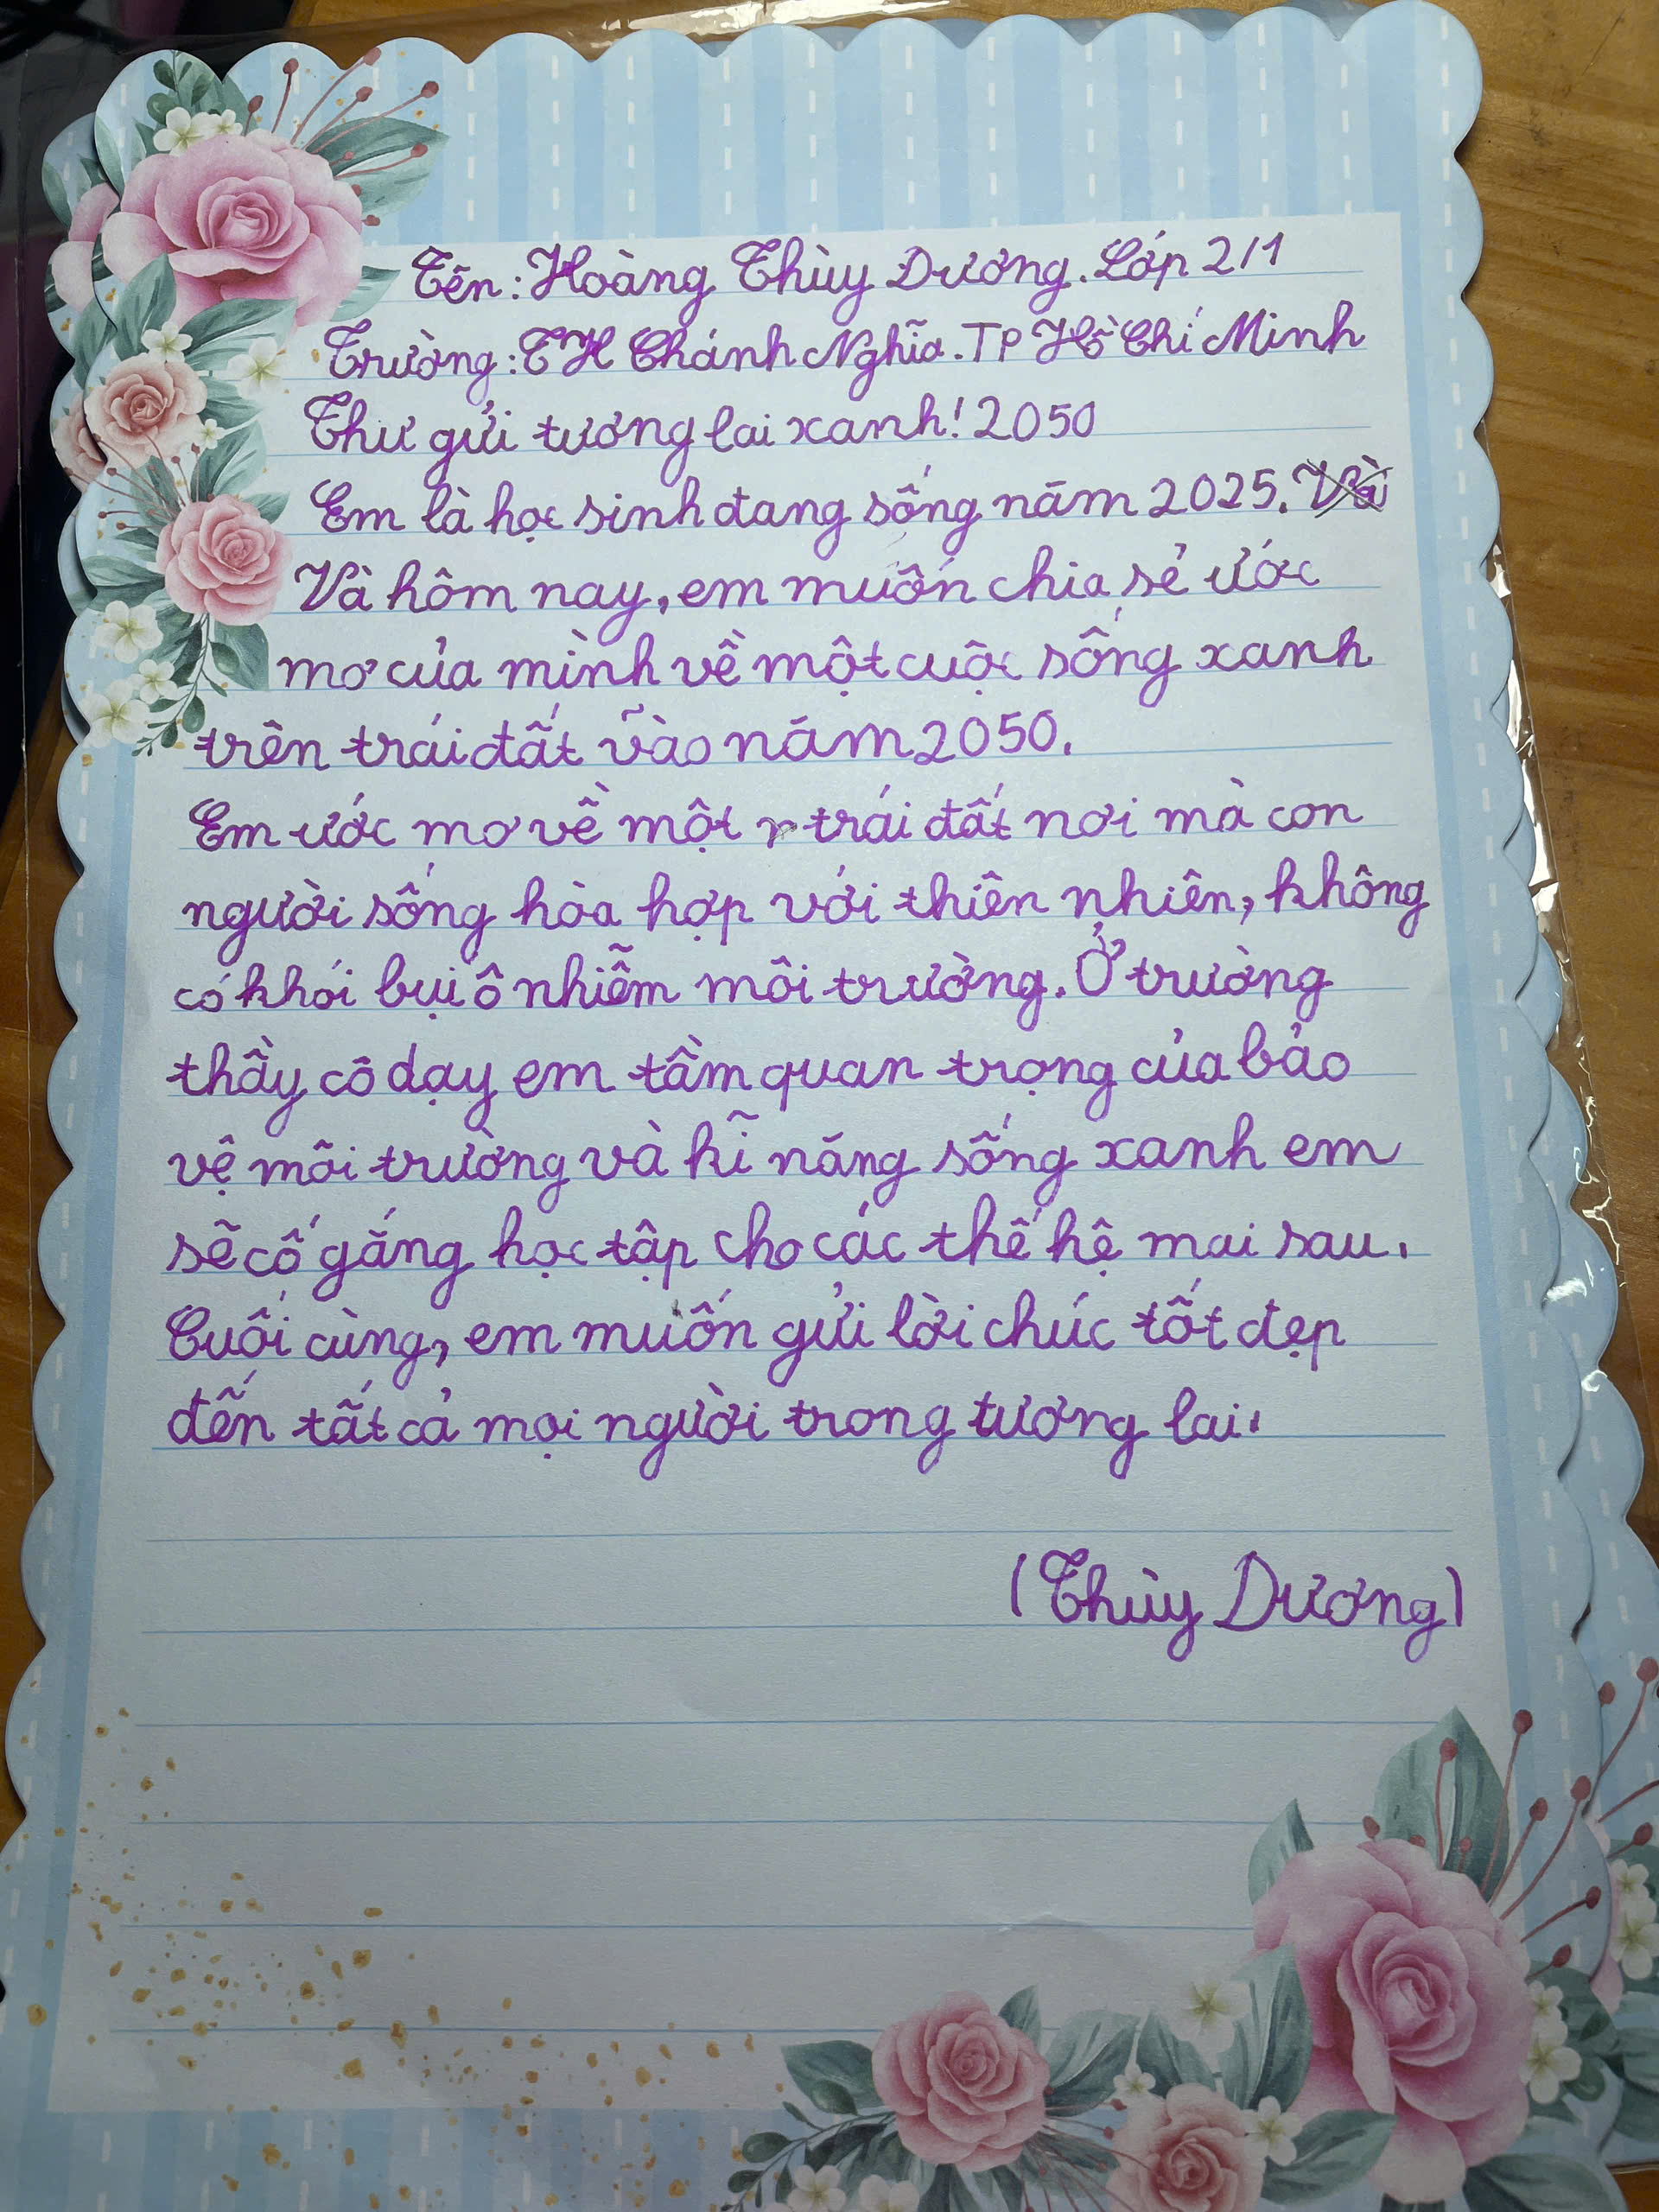 Tên: Hoàng Thùy Dương. Lớp 2/1
Trường: TH Chánh Nghĩa. TP Hồ Chí Minh
Thư gửi tương lai xanh! 2050
Em là học sinh đang sống năm 2025. Và
Và hôm nay, em muốn chia sẻ ước
mơ của mình về một cuộc sống xanh
trên trái đất vào năm 2050.
Em ước mơ về một trái đất nơi mà con
người sống hòa hợp với thiên nhiên, không
có khói bụi ô nhiễm môi trường. Ở trường
thầy cô dạy em tầm quan trọng của bảo
vệ môi trường và kĩ năng sống xanh em
sẽ cố gắng học tập cho các thế hệ mai sau.
Cuối cùng, em muốn gửi lời chúc tốt đẹp
đến tất cả mọi người trong tương lai!
(Thùy Dương)